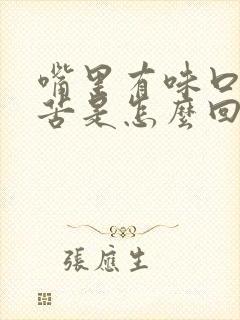 嘴里有味口
苦是怎麽回
張應生